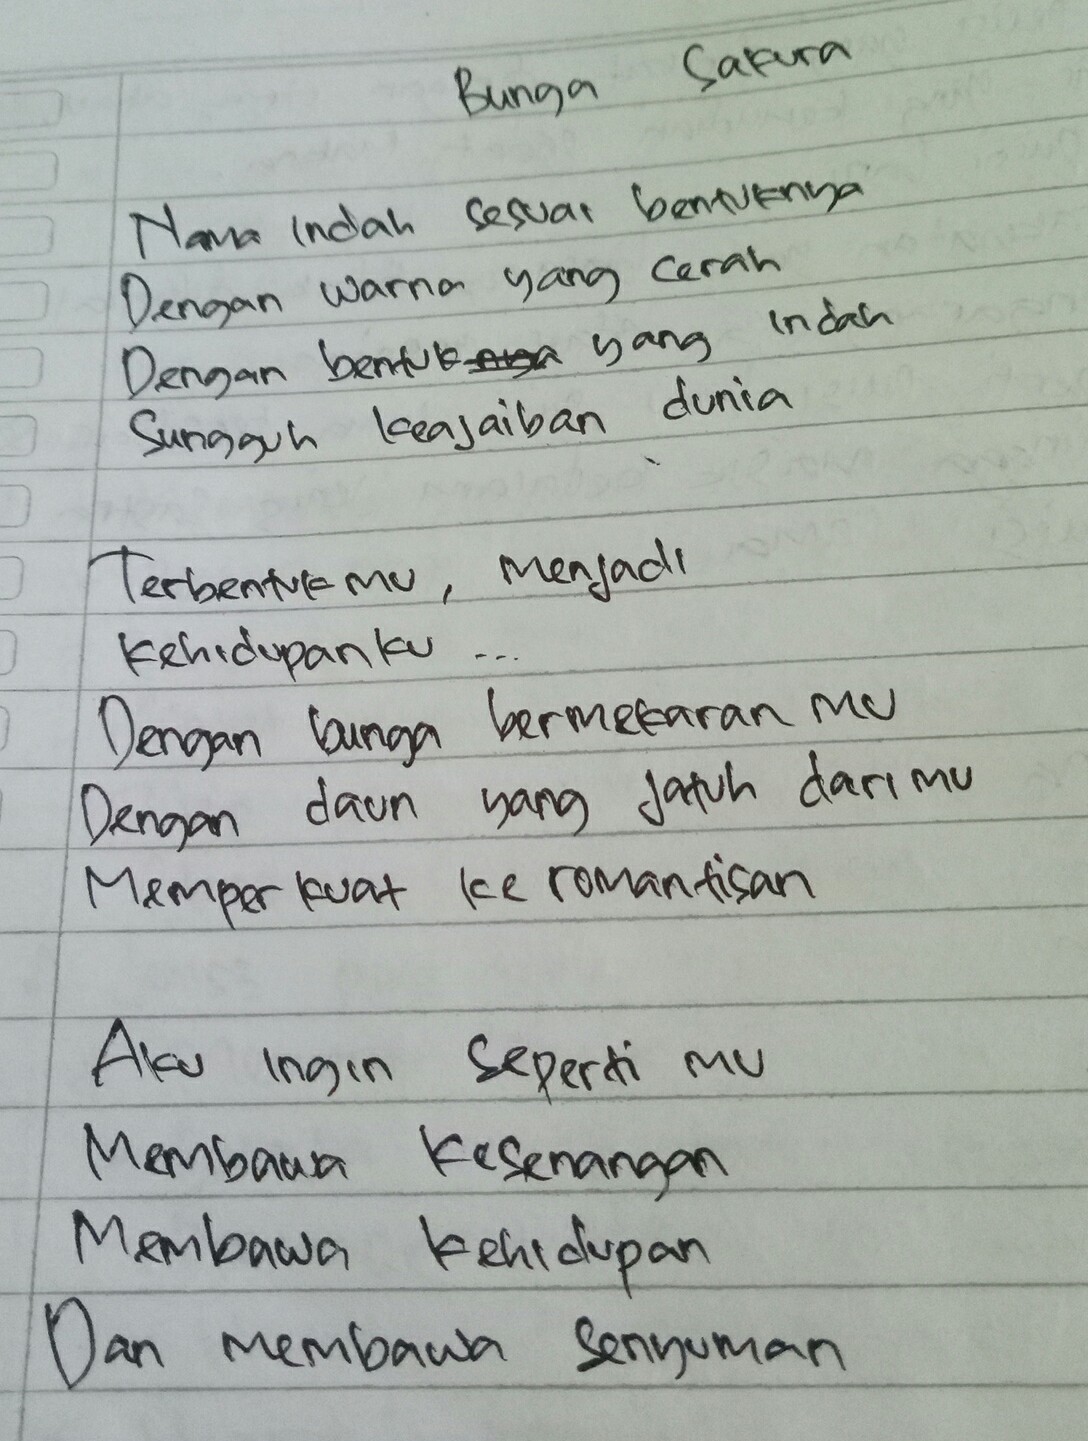 Bunga Sakura
Nama indah sesuai bentuknya
Dengan warna yang cerah
Dengan bentuk yang indah
Sungguh keajaiban dunia
Terbentukmu, menjadi
kehidupanku ...
Dengan bunga bermekaran mu
Dengan daun yang jatuh darimu
Memperkuat keromantisan
Aku ingin seperti mu
Membawa kesenangan
Membawa kehidupan
Dan membawa senyuman